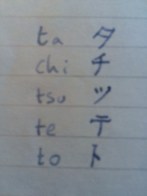 ta タ
chi チ
tsu ツ
te テ
to ト